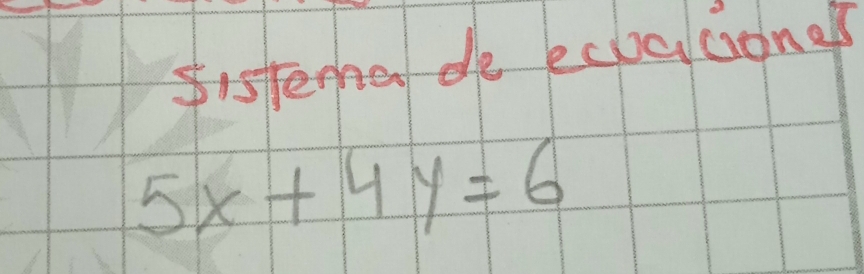 sistema de ecuaciones
5x + 4y = 6